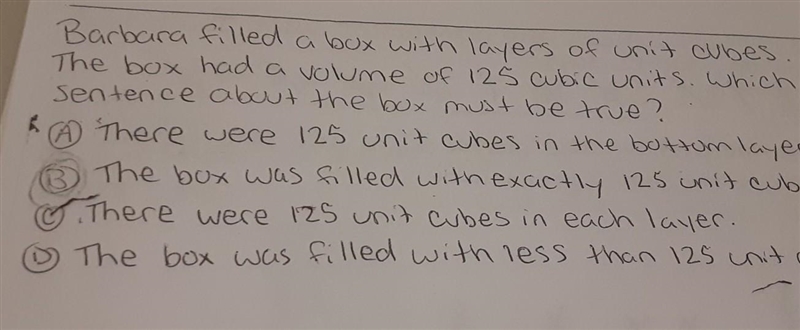 Barbara filled a box with layers of unit cubes.
The box had a volume of 125 cubic units. Which
sentence about the box must be true?
A There were 125 unit cubes in the bottom laye
B The box was filled with exactly 125 unit cub
C There were 125 unit cubes in each layer.
D The box was filled with less than 125 unit